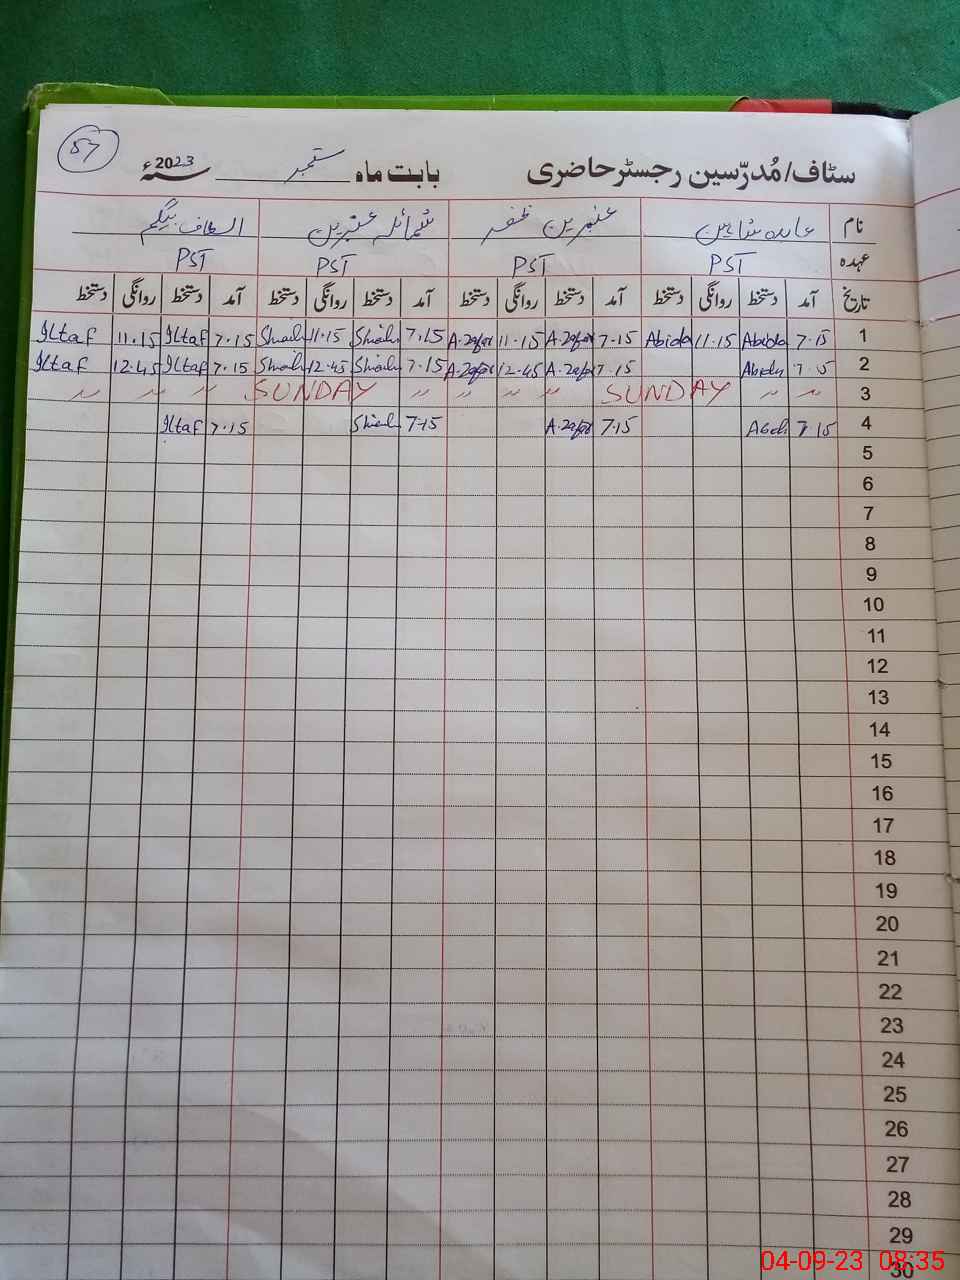 57
سٹاف/مُدرّسین رجسٹر حاضری بابت ماہ ستمبر سنہ 2023ء
نام عابدہ شاہین عنبرین ظفر شمائلہ عنبرین الطاف بیگم
عہدہ PST PST PST PST
تاریخ آمد دستخط روانگی دستخط آمد دستخط روانگی دستخط آمد دستخط روانگی دستخط آمد دستخط روانگی دستخط
1 7.15 Abida 11.15 Abida 7.15 A.Zafar 11.15 A.Zafar 7.15 11.15 7.15 Iltaf 11.15 Iltaf
2 7.15 7.15 A.Zafar 12.45 A.Zafar 7.15 12.45 7.15 Iltaf 12.45 Iltaf
3 〃 〃 SUNDAY 〃 〃 〃 〃 SUNDAY 〃 〃 〃
4 7.15 7.15 A.Zafar 7.15 7.15 Iltaf
5
6
7
8
9
10
11
12
13
14
15
16
17
18
19
20
21
22
23
24
25
26
27
28
29
30
04-09-23 08:35